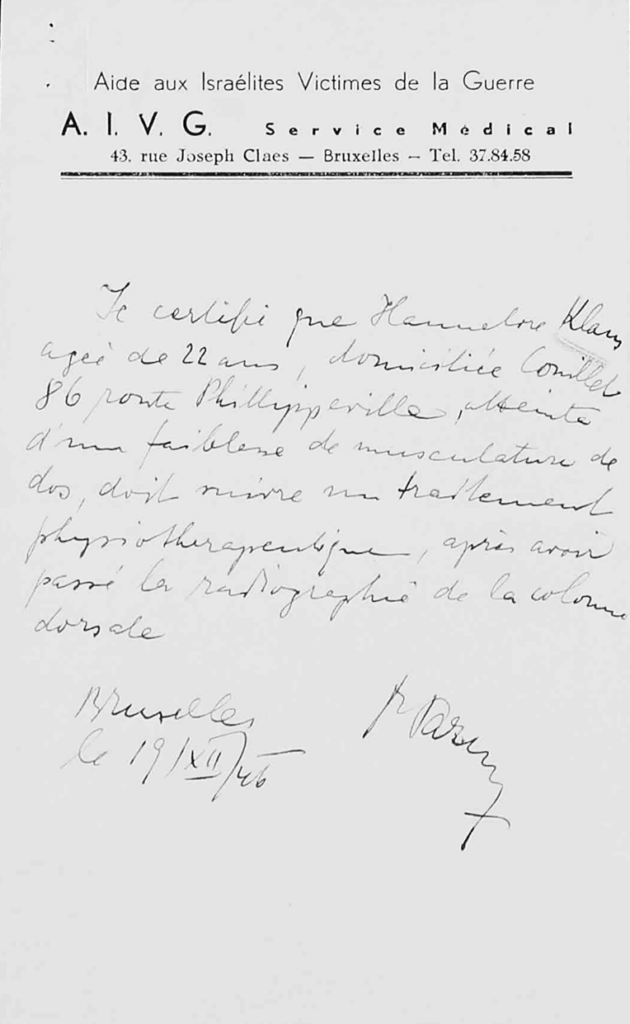 Aide aux Israélites Victimes de la Guerre
A. I. V. G. Service Médical
43. rue Joseph Claes — Bruxelles — Tel. 37.84.58
Je certifie que Hannelore Klaus
ageé de 22 ans, domiciliée Couillet
86 route Phillippeville, atteinte
d'une faiblesse de musculature de
dos, doit suivre un traitement
physiotherapeutique, après avoir
passé la radiographie de la colonne
dorsale
Bruxelles
le 19/XII/46